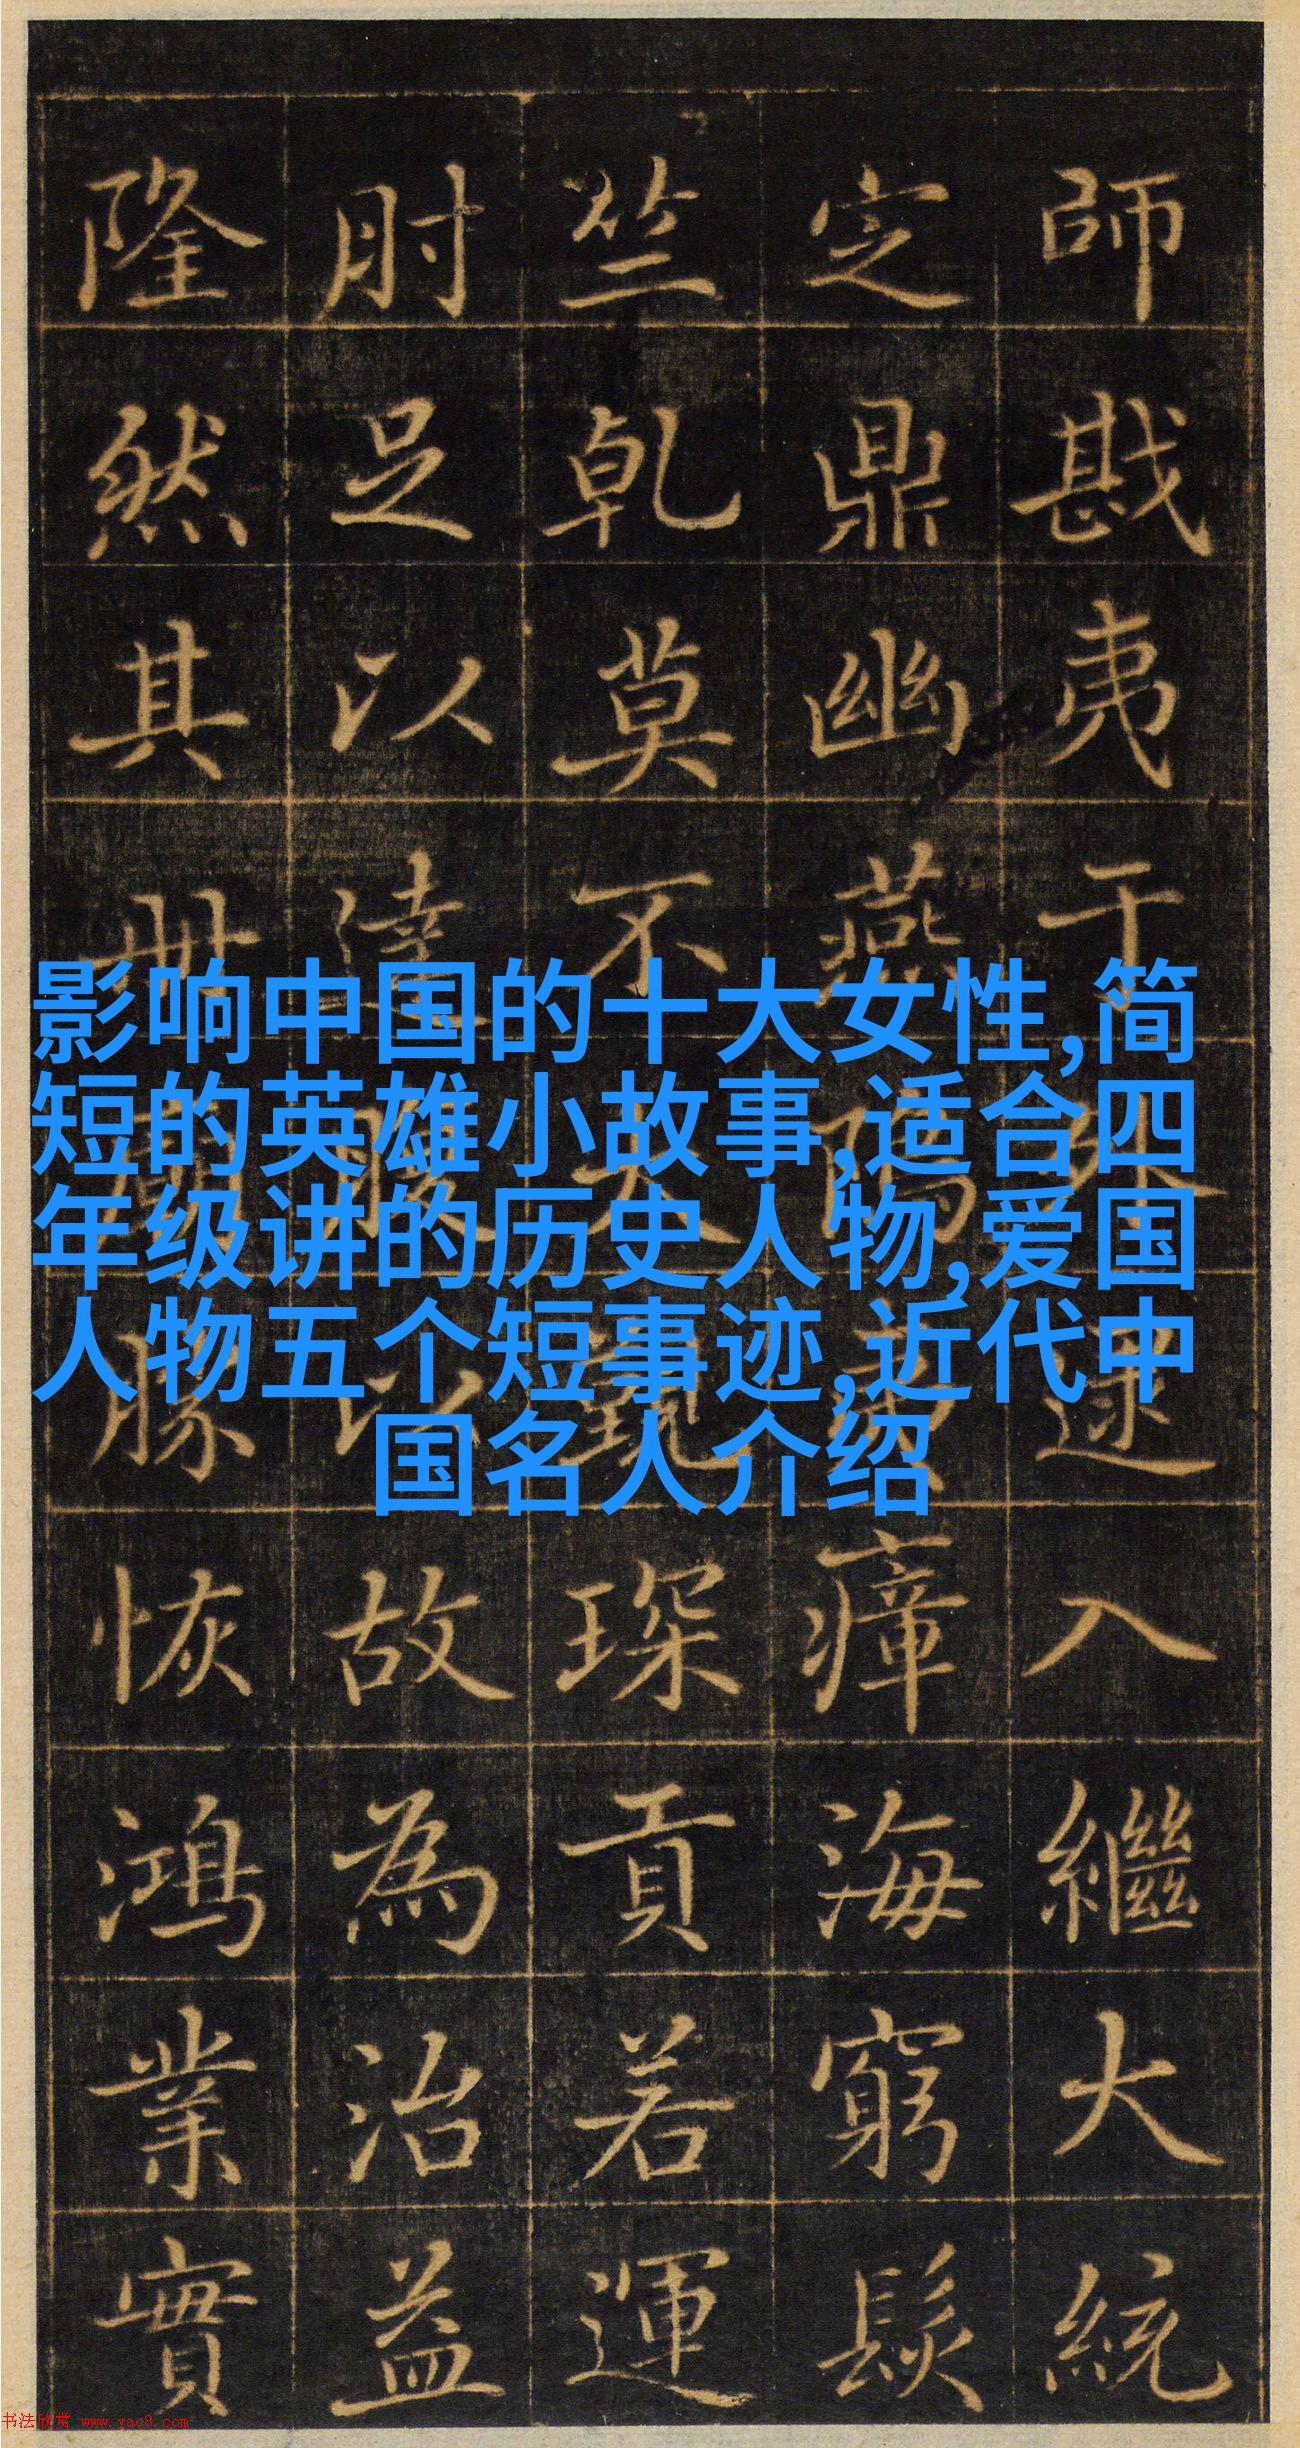 師戡夷于外逮入繼大統
定鼎幽燕陽瘴海窮髮
竺乾莫不琛貢若運
肘足以達故為治益
隆然其勝恢鴻業實
影响中国的十大女性,简
短的英雄小故事,适合四
年级讲的历史人物,爱国
人物五个短事迹,近代中
国名人介绍
书法欣赏 www.yac8.com